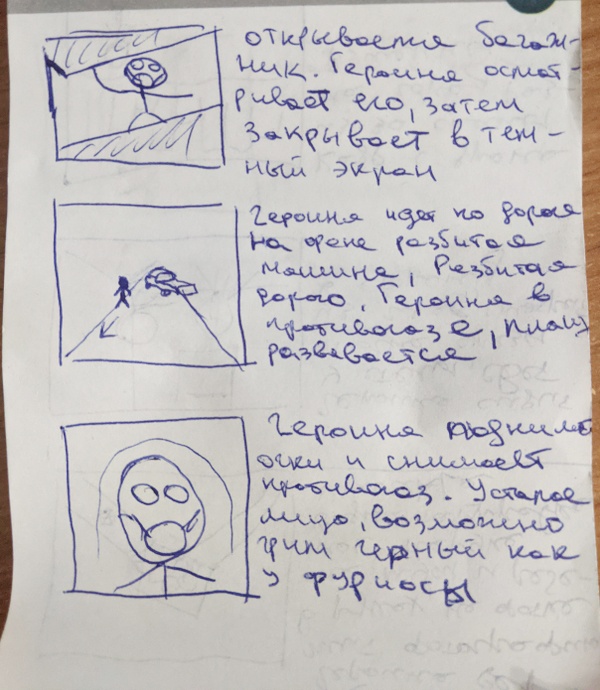 открывается багаж-
ник. Героиня осмат-
ривает его, затем
закрывает в тем-
ный экран
Героиня идет по дороге
на фоне разбитая
машина, Разбитая
дорога. Героиня в
противогазе, плащ
развевается
Героиня поднимает
очки и снимает
противогаз. Усталое
лицо, возможно
грим черный как
у фуриосы